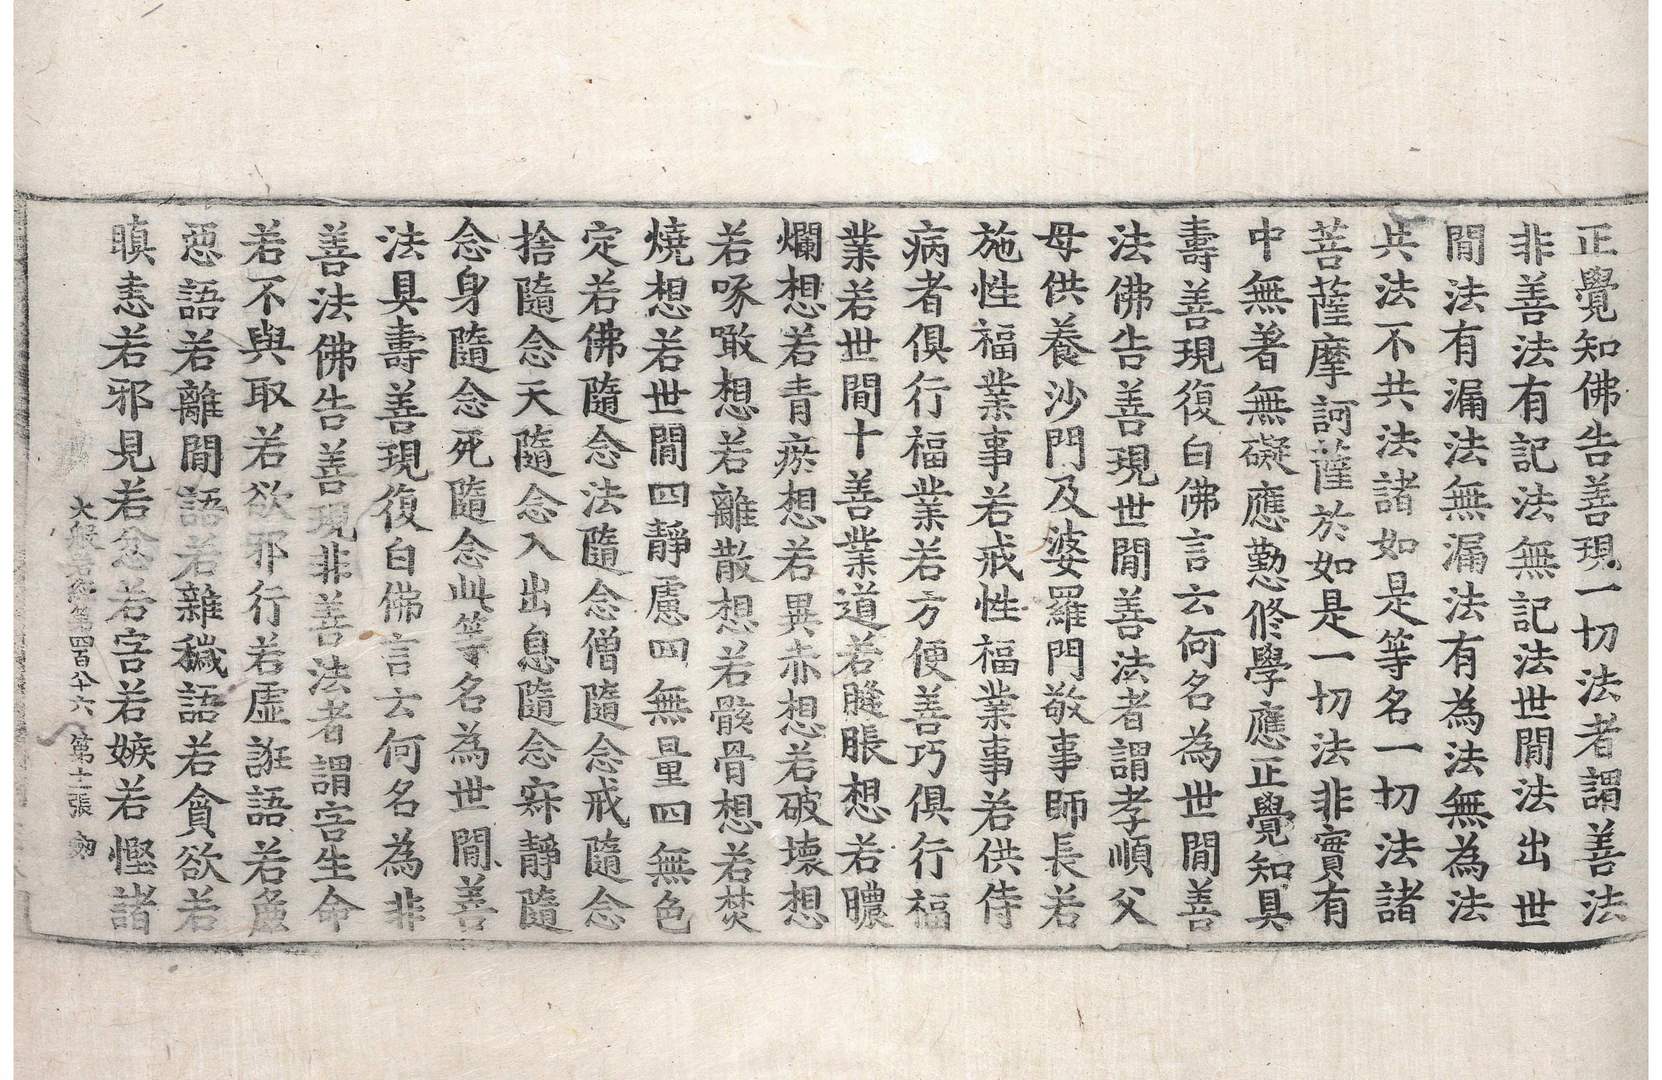 正覺知佛告善現一切法者謂善法
非善法有記法無記法世閒法出世
閒法有漏法無漏法有為法無為法
共法不共法諸如是等名一切法諸
菩薩摩訶薩於如是一切法非實有
中無著無礙應勤修學應正覺知具
壽善現復白佛言云何名為世閒善
法佛告善現世閒善法者謂孝順父
母供養沙門及婆羅門敬事師長若
施性福業事若戒性福業事若供侍
病者俱行福業若方便善巧俱行福
業若世間十善業道若膖脹想若膿
爛想若青瘀想若異赤想若破壞想
若啄噉想若離散想若骸骨想若焚
燒想若世閒四靜慮四無量四無色
定若佛隨念法隨念僧隨念戒隨念
捨隨念天隨念入出息隨念寂靜隨
念身隨念死隨念此等名為世閒善
法具壽善現復白佛言云何名為非
善法佛告善現非善法者謂害生命
若不與取若欲邪行若虛誑語若麁
惡語若離間語若雜穢語若貪欲若
瞋恚若邪見若忿若害若嫉若慳諸
大般若經第四百八十六 第十二張 劒